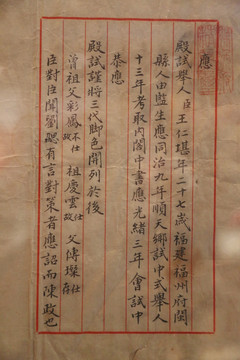 應
殿試舉人臣王仁堪年二十七歲福建福州府閩
縣人由監生應同治九年順天鄉試中式舉人
十三年考取內閣中書應光緒三年會試中
恭應
殿試謹將三代脚色開列於後
曾祖父彩鳳不仕故 祖慶雲仕故 父傳燦仕存
臣對臣聞劉勰有言對策者應詔而陳政也